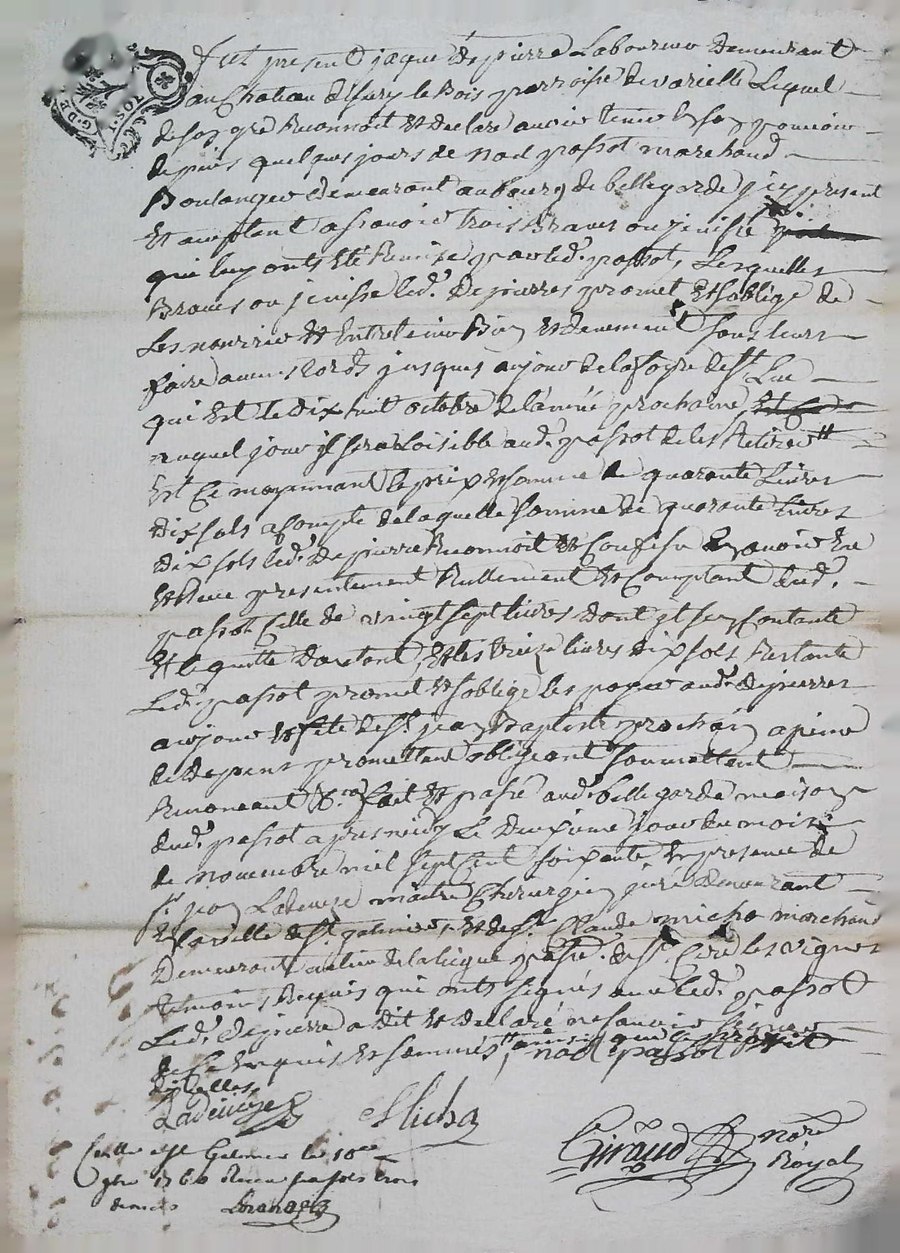 Fut present jaque depierre Laboureur Demeurant
au Chateau d'Isury le Bois parroisse de varielle Lequel
de son gré Reconnoit Et declare avoir tenir En son pouvoir
depuis quelques jours de noel passot marchand
Boulanger Demeurant au bourg de bellegarde jcy present
Et aceptant assavoir trois Braves ou jenisse
qui luy onts Eté Remise par led. passot, Lesquelles
Braves ou jenisse led. Depierres promet Et soblige de
Les nourrir Et Entretenir Bien Et dument sans leurs
faire aucuns jusques aujour de la foire de St. Luc
qui Est le dix huit octobre de lannée prochaine
auquel jour jl sera Loisible aud. passot de les Retirer
Et Ce moyennant le prix Et somme de quarante Livres
dix sols acompte de laquelle somme de quarante Livres
dix sols led. Depierre Reconnoit Et Confesse avoir Eu
Et Receu presentement Reellement Et Comptant dud.
passot Celle de vingt sept livres dont jl se Contante
Et le quitte Dautant, Et les treize livres dix sols Restante
Led. passot promet Et soblige les payer aud. depierres
au jour Et fete de St. jean Baptiste prochain a peine
de depens promettant obligeant soumettant
Renonceant &.ca fait Et passé aud. bellegarde maison
dud. passot apres midy Le Deuxieme jour du mois
de novembre mil sept cent soixante, En presence de
sr. jean Ladeveze maitre Chirurgien juré demeurant
En la ville de St. galmier, Et de sr. Claude micha marchand
Demeurant au lieu de la parre. de St. Cire les vignes
temoins Requis qui onts signés avec led. passot
Led. Depierre a dit Et declaré ne savoir signer
de Ce Enquis Et sommés, noel passot
Ladeveze Micha
Giraud nore. Royal
Controllé a St Galmier le 10e
9bre 1760 Receu sols trois
deniers